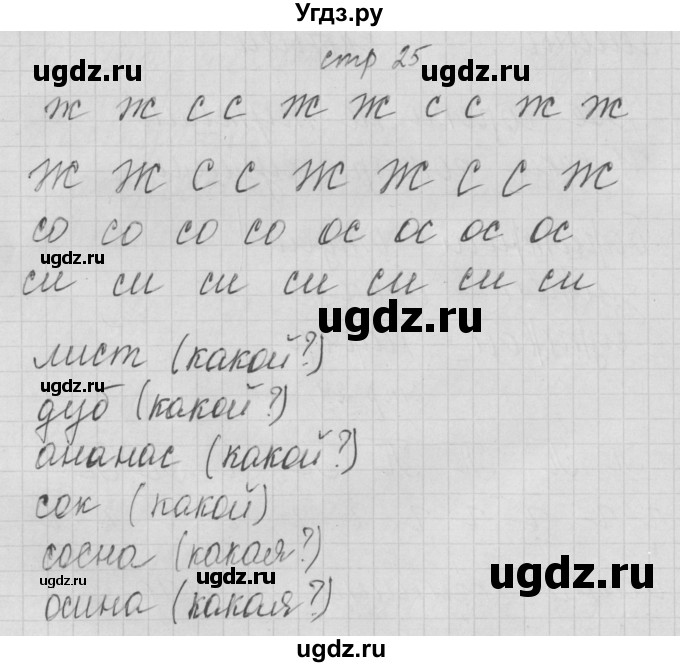 Угдз.ру
стр 25
ugdz.ru ugdz.ru
ж ж с с ж ж с с ж ж
ugdz.ru ugdz.ru
ж ж с с ж ж с с ж
со со со со ос ос ос ос
си си си си си си си
ugdz.ru
лист (какой?)
ugdz.ru
дуб (какой?)
ugdz.ru ugdz.ru
ананас (какой?)
сок (какой)
сосна (какая?)
ugdz.ru ugdz.ru ugdz.ru
осина (какая?)
ugdz.ru